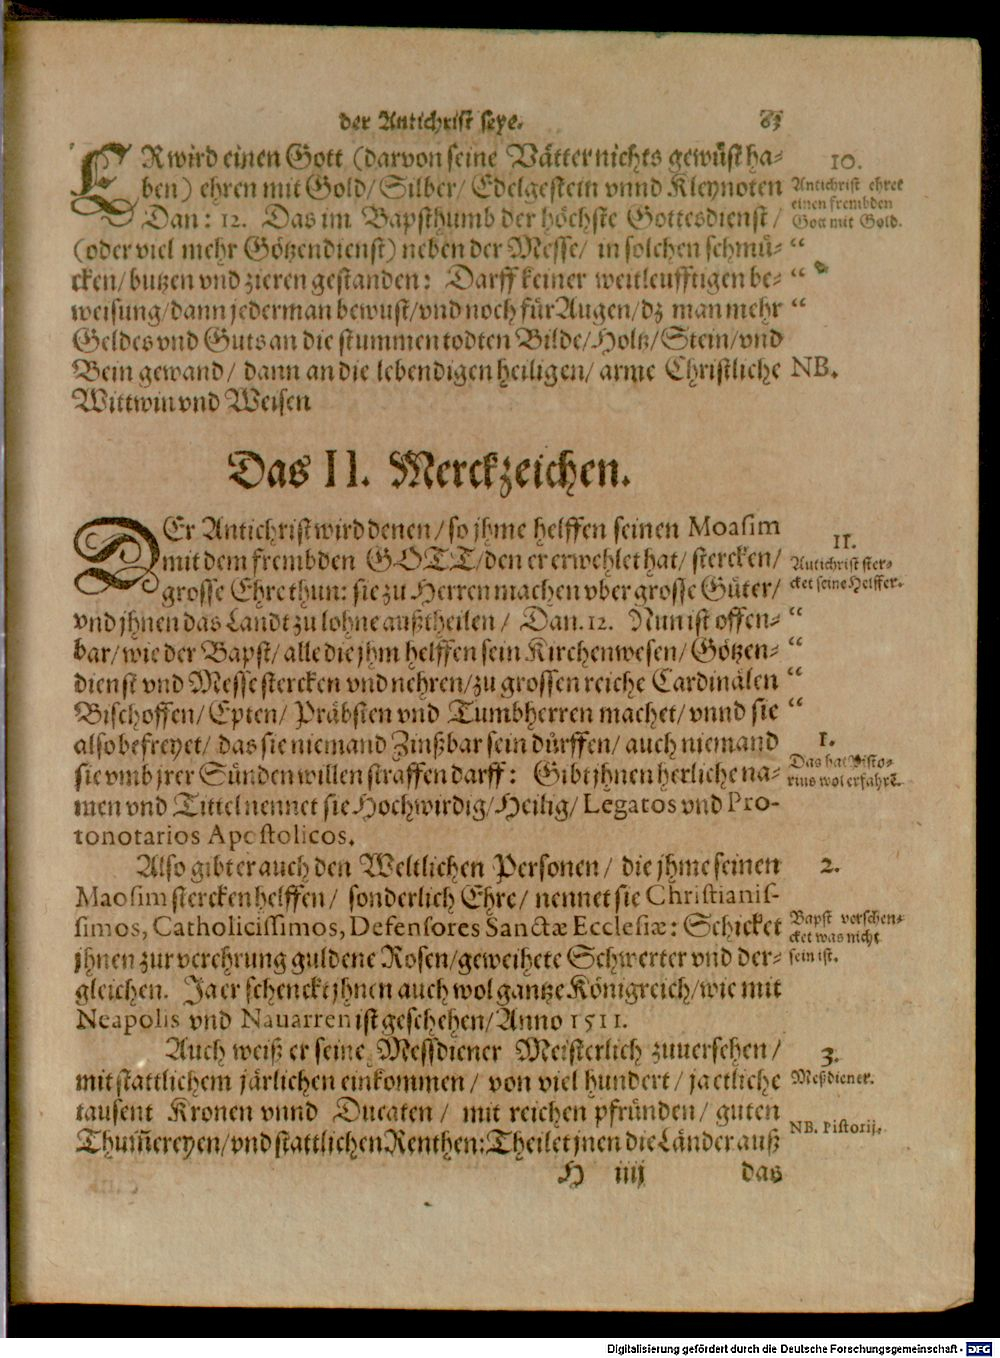 der Antichrist seye. 83
ER wird einen Gott (darvon seine Vätter nichts gewüst ha-
ben) ehren mit Gold/ Silber/ Edelgestein vnnd Kleynoten
Dan: 12. Das im Bapsthumb der höchste Gottesdienst/
(oder viel mehr Götzendienst) neben der Messe/ in solchen schmü-
cken/ butzen vnd zieren gestanden: Darff keiner weitleufftigen be-
weisung/ dann jederman bewust/ vnd noch für Augen/ dz man mehr
Geldes vnd Guts an die stummen todten Bilde/ Holtz/ Stein/ vnd
Bein gewand/ dann an die lebendigen heiligen/ arme Christliche
Wittwin vnd Weisen
10.
Antichrist ehret
einen frembden
Gott mit Gold.
“
“
“
NB.
Das 11. Merckzeichen.
DEr Antichrist wird denen/ so jhme helffen seinen Moasim
mit dem frembden GOTT/ den er erwehlet hat/ stercken/
grosse Ehre thun: sie zu Herren machen vber grosse Güter/
vnd jhnen das Landt zu lohne außtheilen/ Dan. 12. Nun ist offen-
bar/ wie der Bapst/ alle die jhm helffen sein Kirchenwesen/ Götzen-
dienst vnd Messe stercken vnd nehren/ zu grossen reiche Cardinälen
Bischoffen/ Epten/ Präbsten vnd Tumbherren machet/ vnnd sie
also befreyet/ das sie niemand Zinßbar sein dürffen/ auch niemand
sie vmb jrer Sünden willen straffen darff: Gibt jhnen herliche na-
men vnd Tittel nennet sie Hochwirdig/ Heilig/ Legatos vnd Pro-
tonotarios Apostolicos.
11.
Antichrist ster-
cket seine Helffer.
“
“
“
“
1.
Das hat Pisto-
rius wol erfahrē.
Also gibt er auch den Weltlichen Personen/ die jhme seinen
Maosim stercken helffen/ sonderlich Ehre/ nennet sie Christianis-
simos, Catholicissimos, Defensores Sanctæ Ecclesiæ: Schicket
jhnen zur verehrung guldene Rosen/ geweihete Schwerter vnd der-
gleichen. Ja er schenckt jhnen auch wol gantze Königreich/ wie mit
Neapolis vnd Nauarren ist geschehen/ Anno 1511.
2.
Bapst verschen-
cket was nicht
sein ist.
Auch weiß er seine Messdiener Meisterlich zuuersehen/
mit stattlichem järlichen einkommen/ von viel hundert/ ja etliche
tausent Kronen vnnd Ducaten/ mit reichen pfründen/ guten
Thum̃ereyen/ vnd stattlichen Renthen: Theilet jnen die Länder auß
3.
Meßdiener.
NB. Pistorij.
H iiij das
Digitalisierung gefördert durch die Deutsche Forschungsgemeinschaft - DFG